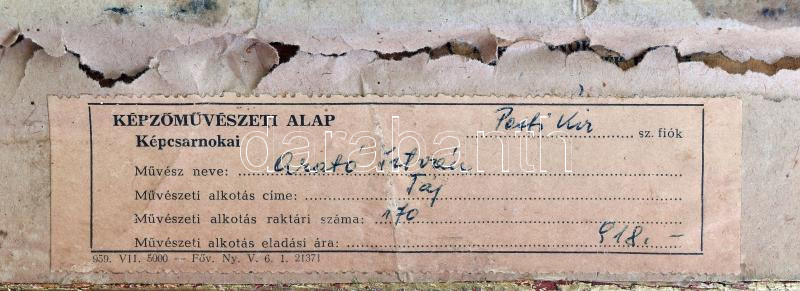 KÉPZŐMŰVÉSZETI ALAP
Képcsarnokai
Pesti Kir sz. fiók
Művész neve: Arató István
Művészeti alkotás címe: Táj
Művészeti alkotás raktári száma: 170
Művészeti alkotás eladási ára: 918.-
959. VII. 5000 — Főv. Ny. V. 6. 1. 21371
darabanth.com